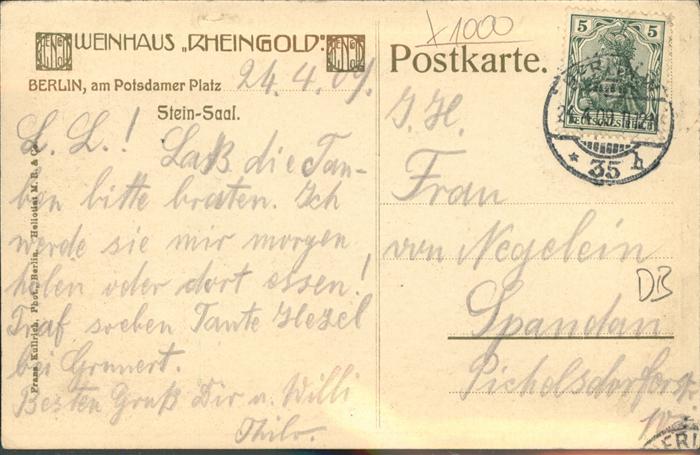 WEINHAUS „RHEINGOLD“.
BERLIN, am Potsdamer Platz
Stein-Saal.
Postkarte.
x 1000
24.4.09.
L. L.! Laß die Tau-
ben bitte braten. Ich
werde sie mir morgen
holen oder dort essen!
Traf soeben Tante
bei Grunert.
Besten Gruß Dir u. Willi
Thilo.
I. H.
Frau
von Negelein
Spandau
Pichelsdorferstr.
DB
5 5
DEUTSCHES REICH
BERLIN
09. 11-12
* 35 h
Franz Kullrich, Phot., Berlin.